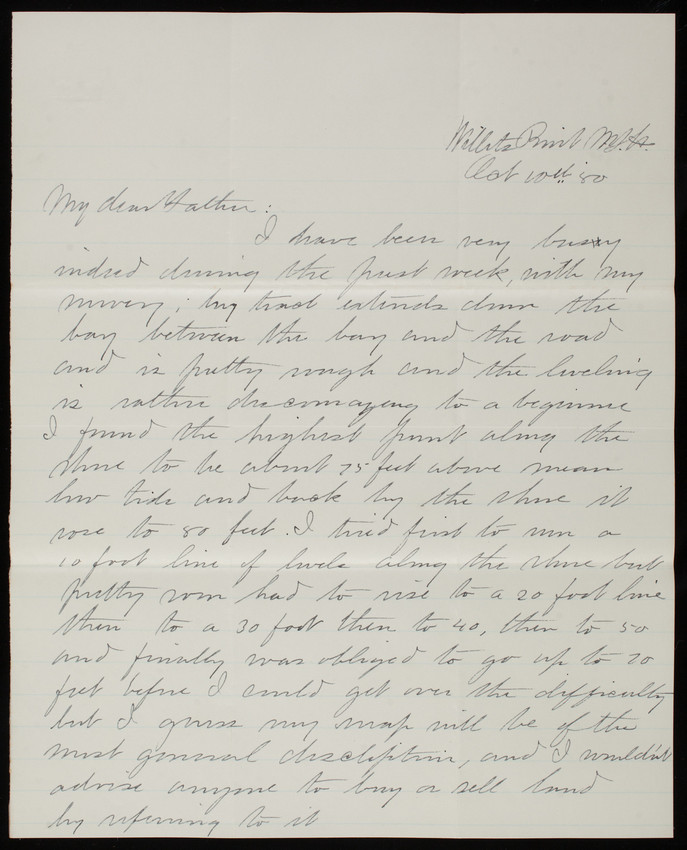 Willets Point N.Y.H.
Oct 10th '80
My dear Father:
I have been very busy
indeed during the past week, with my
survey; my tract extends down the
bay between the bay and the road
and is pretty rough and the leveling
is rather discouraging to a beginner
I found the highest point along the
shore to be about 75 feet above mean
low tide and back by the shore it
rose to 80 feet. I tried first to run a
10 foot line of levels along the shore but
pretty soon had to rise to a 20 foot line
then to a 30 foot then to 40, then to 50
and finally was obliged to go up to 70
feet before I could get over the difficulty
but I guess my map will be of the
most general discliption, and I wouldn't
advise anyone to buy or sell land
by referring to it